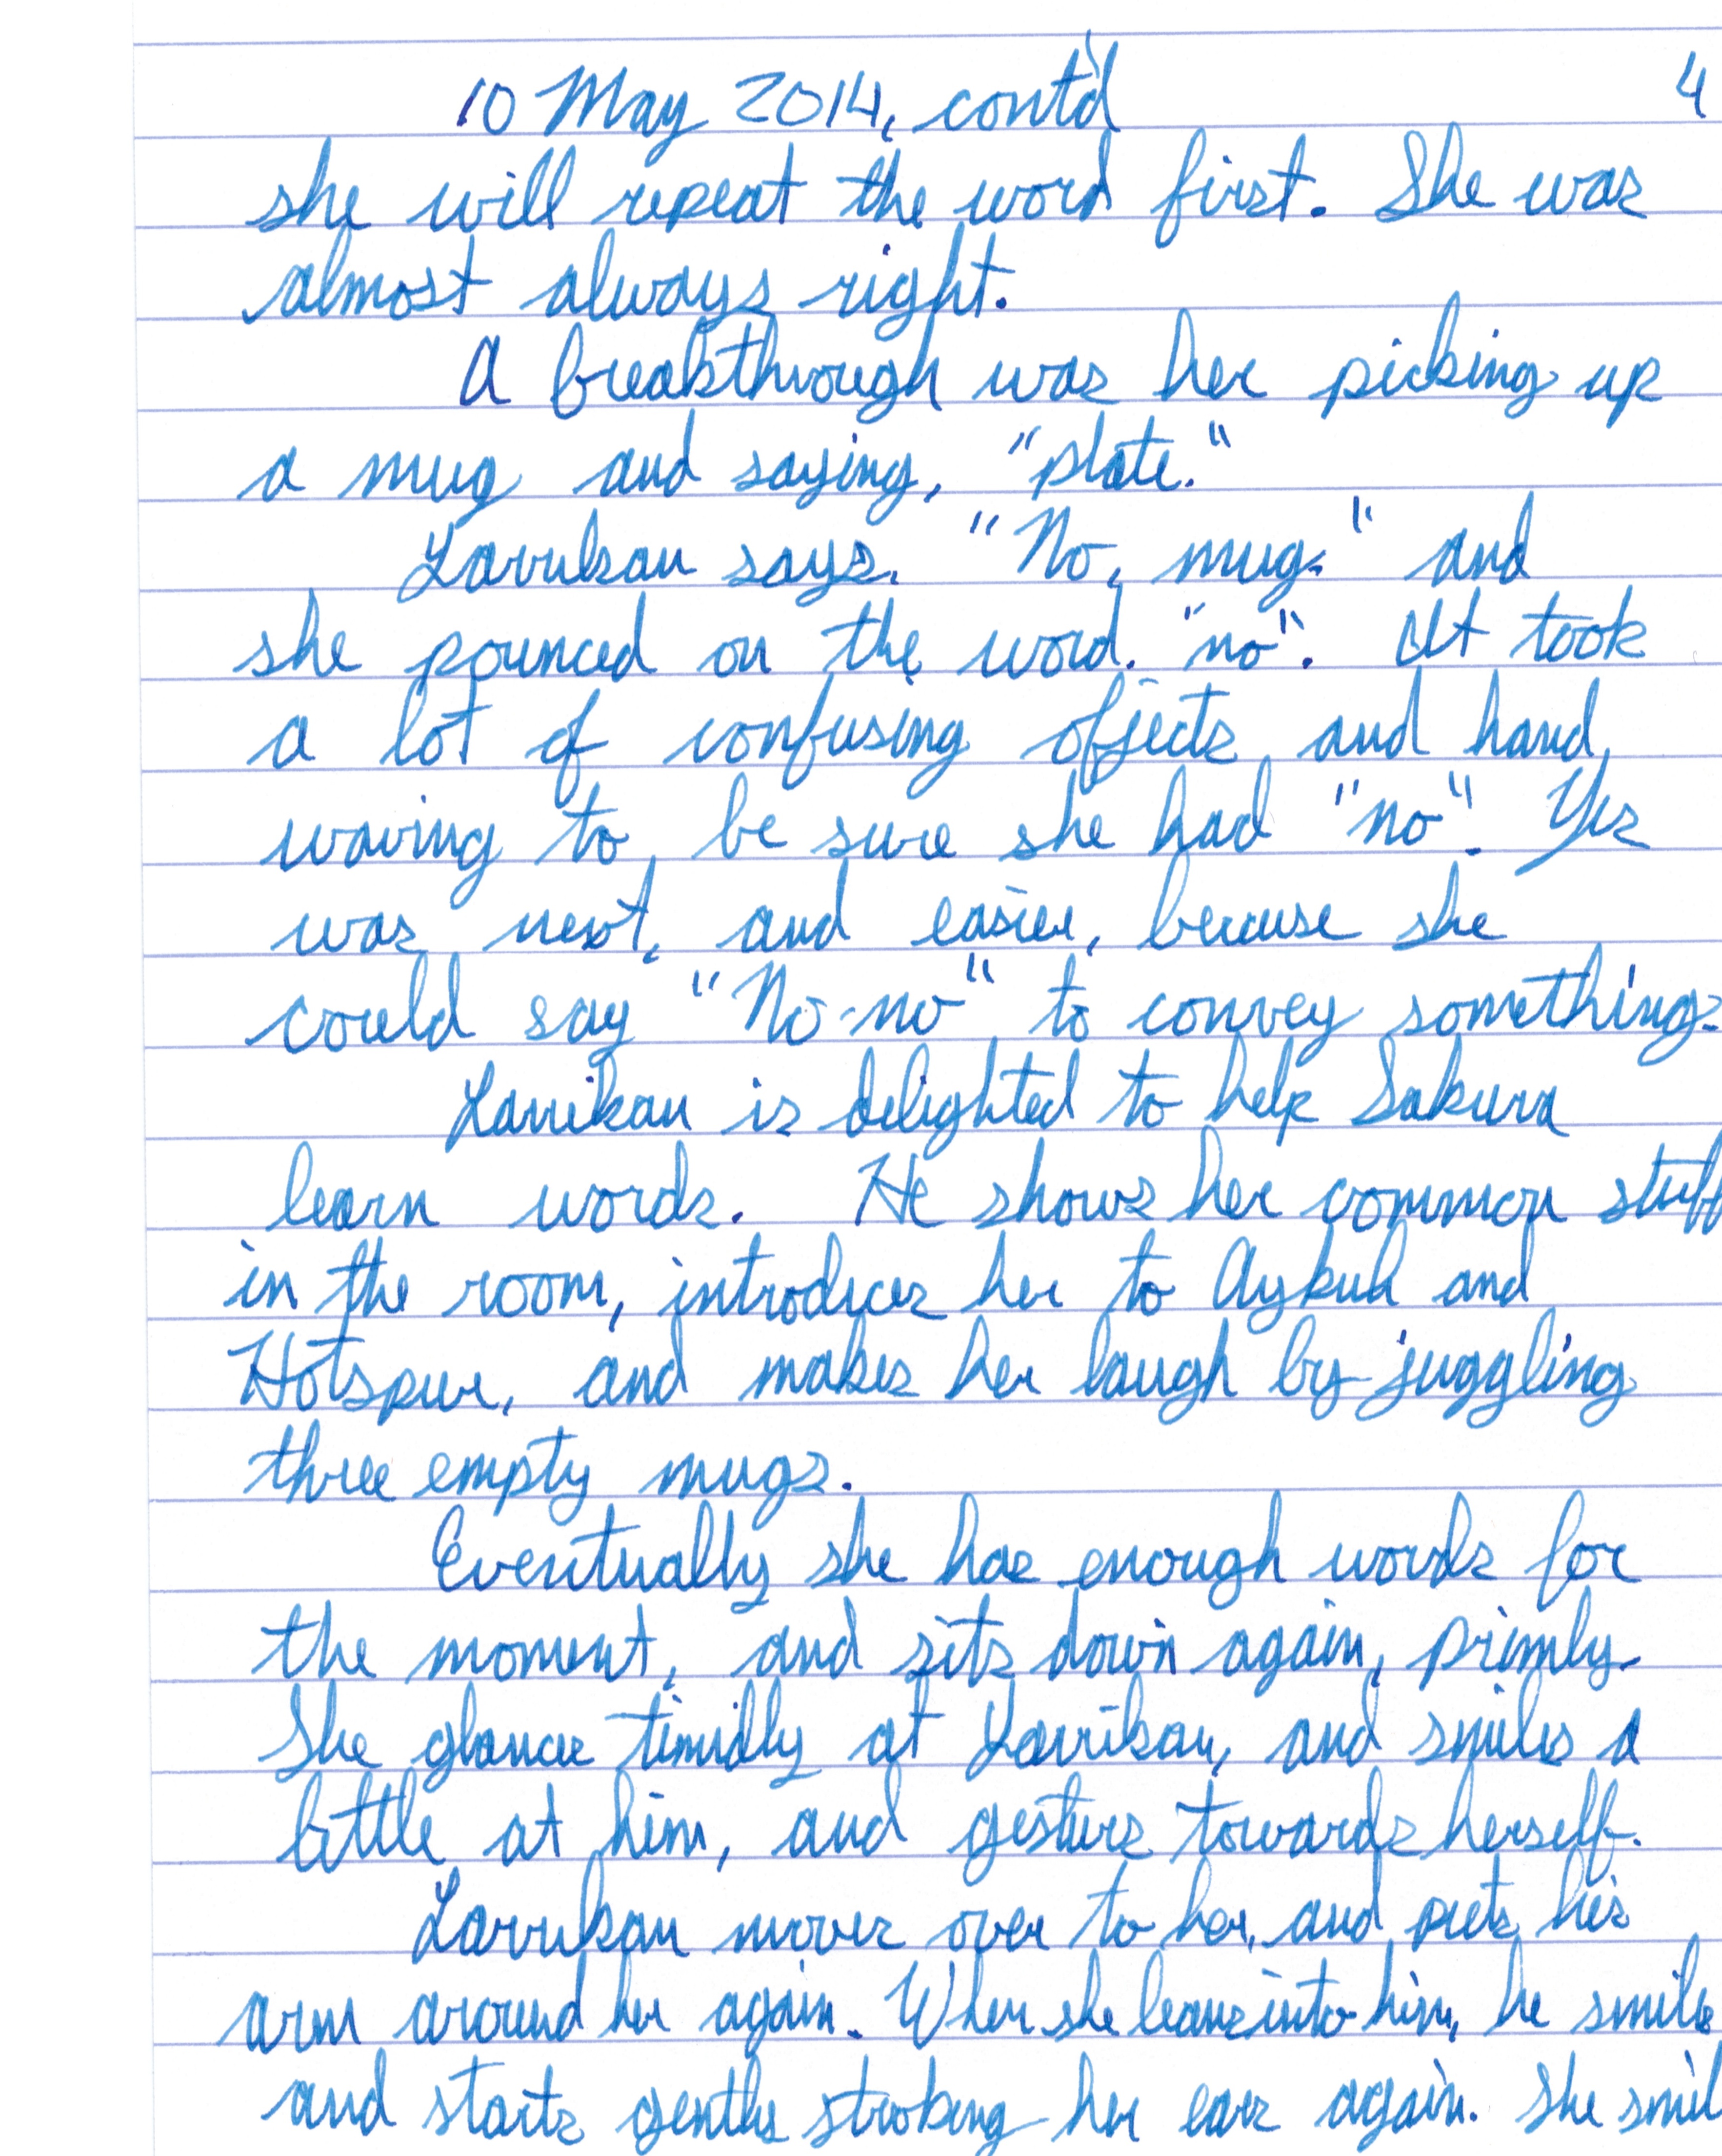 10 May 2014, cont'd 4
she will repeat the word first. She was
almost always right.
A breakthrough was her picking up
a mug and saying, "plate."
Larrikan says. "No, mug." and
she pounced on the word. "no". It took
a lot of confusing objects and hand
waving to be sure she had "no". Yes
was next, and easier, because she
could say "No-no" to convey something.
Larrikan is delighted to help Sakura
learn words. He shows her common stuff
in the room, introduces her to Aykuh and
Hotspur, and makes her laugh by juggling
three empty mugs.
Eventually she has enough words for
the moment, and sits down again, primly.
She glances timidly at Larrikan, and smiles a
little at him, and gesturs towards herself.
Larrikan moves over to her, and puts his
arm around her again. When she leans into him, he smile
and starts gently stroking her ears again. She smil